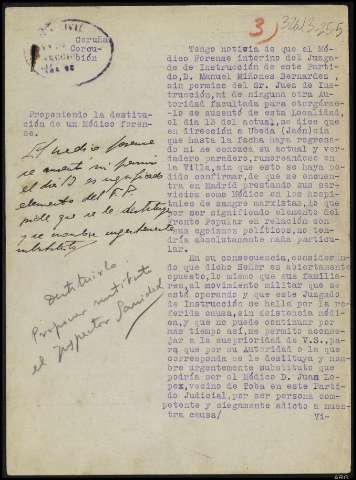 3
32613-25-5
Coruña
Corcu-
Proponiendo la destitu
ción de un Médico foren-
se.
El médico forense
se ausentó sin permiso
el día 13 es significado
elemento del F.P.
pide que se le destituya
y se nombre urgentemente
substituto
Destituirlo.
Propone sustituto
el Inspector Sanidad
Tengo noticia de que el Mé
dico Forense interino del Juzga-
do de Instrucción de este Parti-
do, D. Manuel Miñones Bernardez ,
sin permiso del Sr. Juez de Ins-
trucción, ni de ninguna otra Au-
toridad facultada para otorgárse-
lo se ausentó de esta Localidad,
el dia 13 del actual, no se dice que
en dirección a Ubeda (Jaén) sin
que hasta la fecha haya regresado
ni se conozca su actual y verda-
dero paradero, rumoreándose en
la Villa, sin que esto se haya po-
dido confirmar, de que se encuen-
tra en Madrid prestando sus ser-
vicios como Médico en los Hospita-
les de sangre marxistas, lo que
por ser significado elemento del
Frente Popular en relación con
sus egoismos políticos, no ten-
dría absolutamente nada parti-
cular.
En su consecuencia, consideran
do que dicho Señor es abiertamente
opuesto, lo mismo que sus familia-
res, al movimiento militar que se
está operando y que este Juzgado
de Instrucción se halla por la re-
ferida causa, sin asistencia médi-
ca, y que no puede continuar por
mas tiempo así, me permito aconse-
jar a la superioridad de V.S., pa-
ra que por su Autoridad o la que
corresponda se le destituya y nom-
bre urgentemente substituto que
podría ser el Médico D. Juan Lo-
pez, vecino de Toba en este Partido
Judicial, por ser persona com-
petente y ciegamente adicto a nues-
tra causa/
Vi-